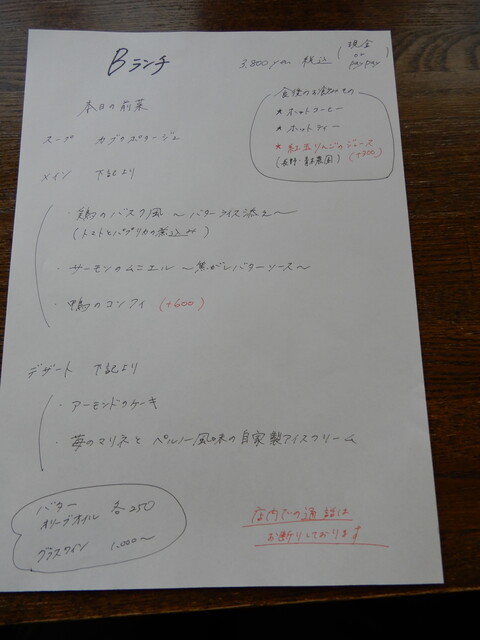 Bランチ
3,800yen 税込 (現金 or paypay)
本日の前菜
スープ カブのポタージュ
メイン 下記より
・鶏のバスク風 〜バターライス添え〜
(トマトとパプリカの煮込み)
・サーモンのムニエル 〜焦がしバターソース〜
・鴨のコンフィ (+600)
デザート 下記より
・アーモンドのケーキ
・苺のマリネと ペルノー風味の自家製アイスクリーム
食後のお飲みもの
* ホットコーヒー
* ホットティー
* 紅玉りんごのジュース
(長野・青木農園) (+300)
バター
オリーブオイル 各250
グラスワイン 1,000〜
店内での通話は
お断りしております